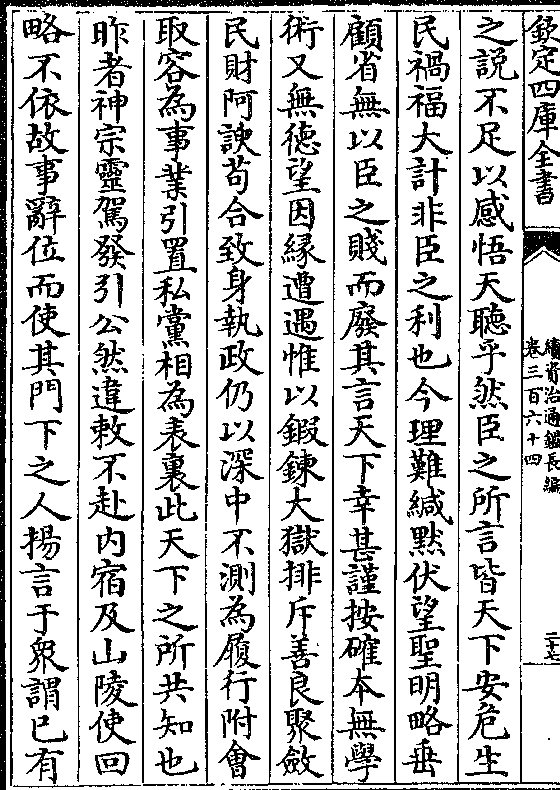 欽定四庫全書
續資治通鑑長編
卷三百六十四
二十七
之說不足以感悟天聽乎然臣之所言皆天下安危生
民禍福大計非臣之利也今理難緘黙伏望聖明略垂
顧省無以臣之賤而廢其言天下幸甚謹按確本無學
術又無徳望因緣遭遇惟以鍜鍊大獄排斥善良聚斂
民財阿諛苟合致身執政仍以深中不測為履行附會
取容為事業引置私黨相為表裏此天下之所共知也
昨者神宗靈駕發引公然違敕不赴内宿及山陵使回
略不依故事辭位而使其門下之人揚言于衆謂已有